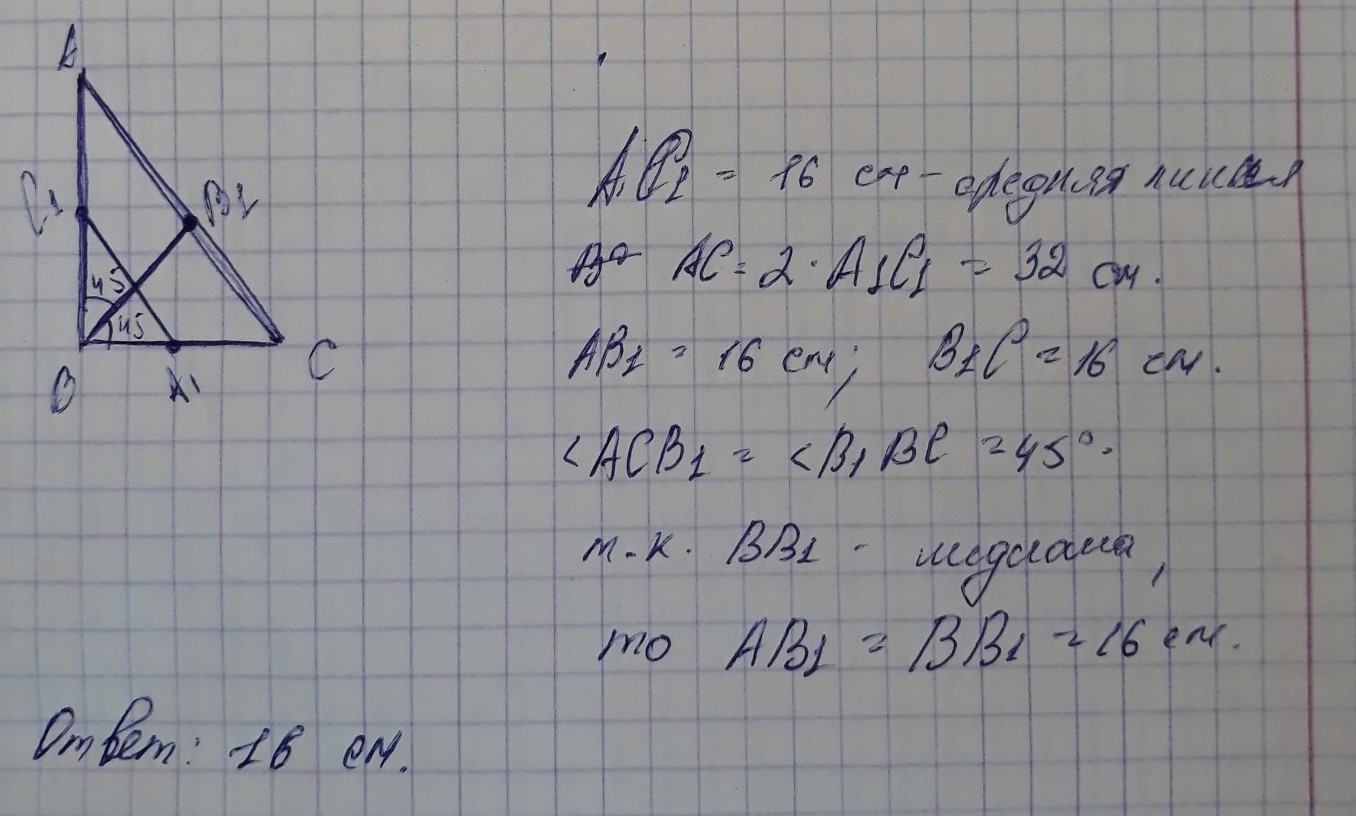 A
C1
B1
45
45
B
A1
C
A1C1 = 16 см – средняя линия
AC = 2 · A1C1 = 32 см.
AB1 = 16 см; B1C = 16 см.
<ACB1 = <B1BC = 45°.
т.к. BB1 - медиана,
то AB1 = BB1 = 16 см.
Ответ: 16 см.